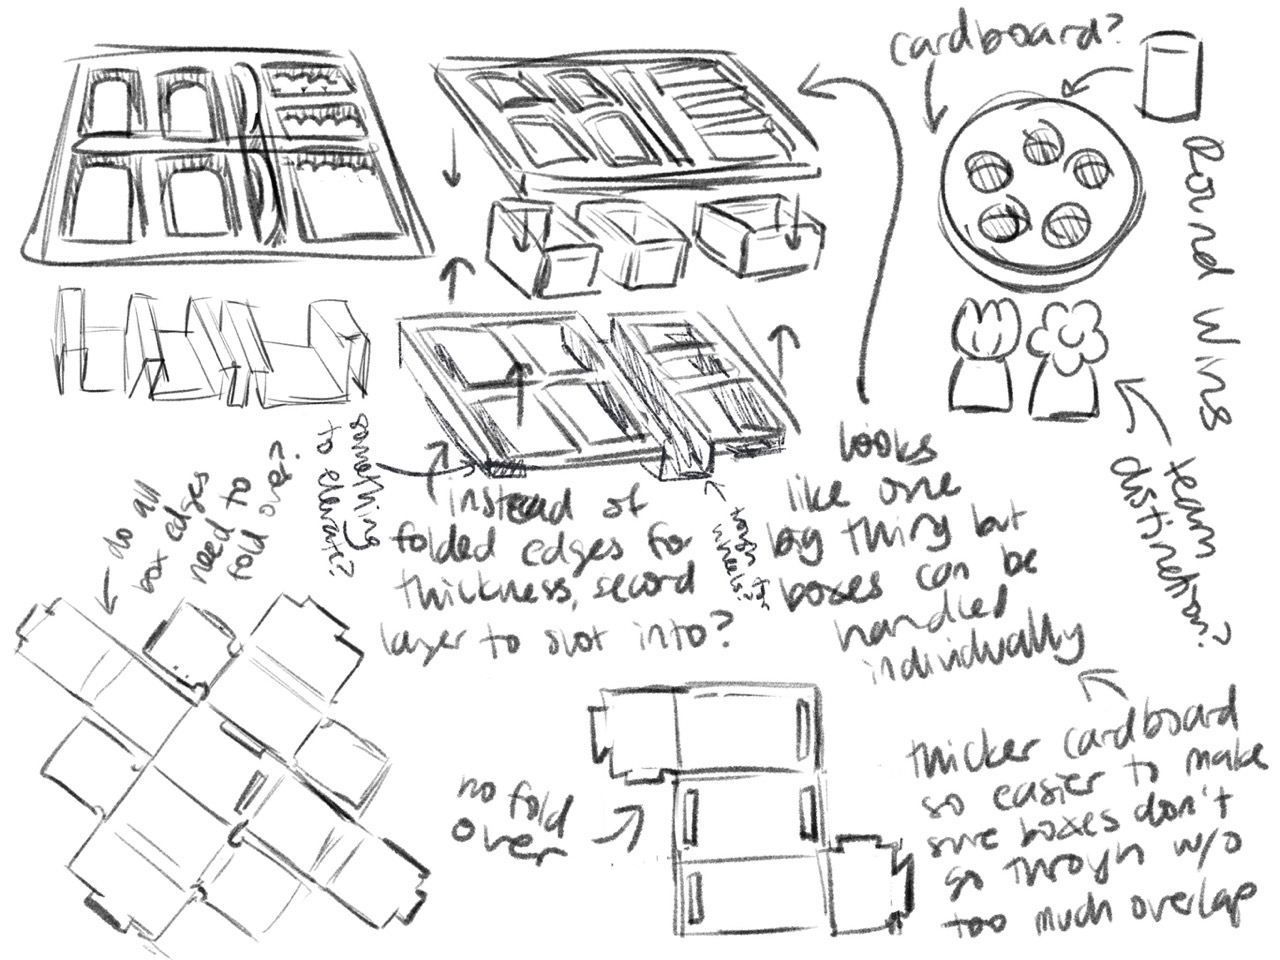 cardboard?
Round Wins
team
distinction?
looks
like one
big thing but
boxes can be
handled
individually
instead of
folded edges for
thickness, second
layer to slot into?
something
to elevate?
trough for
wheels?
do all
box edges
need to
fold over?
no fold
over
thicker cardboard
so easier to make
sure boxes don't
go through w/o
too much overlap